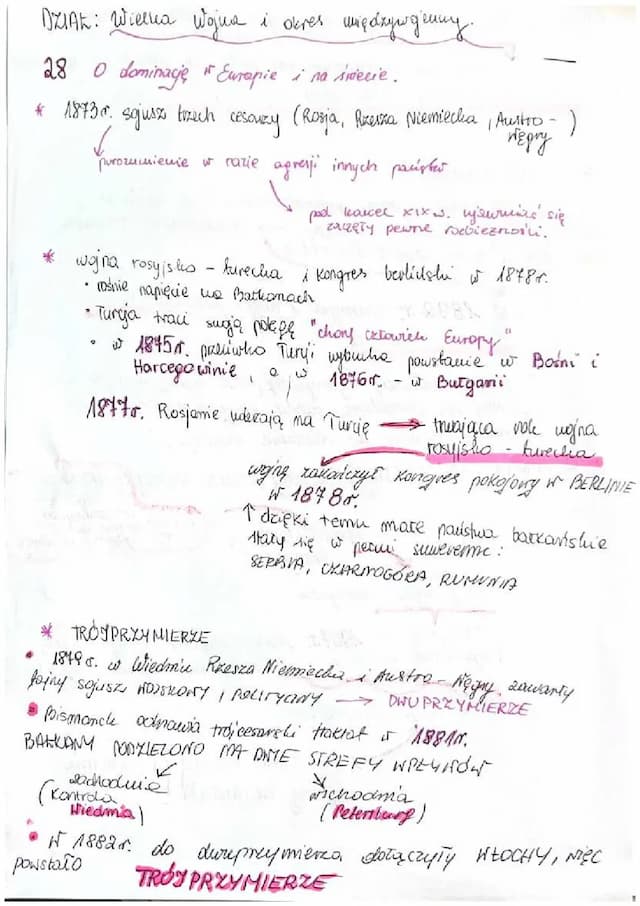 DZIAŁ: Wielka Wojna i okres międzywojenny.
28 O dominację w Europie i na świecie.
* 1873r. sojusz trzech cesarzy (Rosja, Rzesza Niemiecka, Austro-Węgry)
porozumienie w razie agresji innych państw
pod koniec XIX w. ujawniać się
zaczęły pewne rozbieżności.
* wojna rosyjsko-turecka i kongres berliński w 1878r.
• rośnie napięcie na Bałkanach
• Turcja traci swoją potęgę "chory człowiek Europy"
• w 1875r. przeciwko Turcji wybucha powstanie w Bośni i
Hercegowinie, a w 1876r. - w Bułgarii
1877r. Rosjanie uderzają na Turcję → trwająca rok wojna
rosyjsko-turecka
wojnę zakończył kongres pokojowy w BERLINIE
w 1878r.
↑ dzięki temu małe państwa bałkańskie
stały się w pełni suwerenne:
SERBIA, CZARNOGÓRA, RUMUNIA
* TRÓJPRZYMIERZE
• 1879r. w Wiedniu Rzesza Niemiecka i Austro-Węgry zawarły
tajny sojusz WOJSKOWY I POLITYCZNY → DWUPRZYMIERZE
• Bismarck odnawia trójcesarski traktat w 1881r.
BAŁKANY PODZIELONO NA DWIE STREFY WPŁYWÓW
zachodnia wschodnia
(kontrola Wiednia) (Petersburg)
• W 1882r. do dwuprzymierza dołączyły WŁOCHY, więc
powstało TRÓJPRZYMIERZE